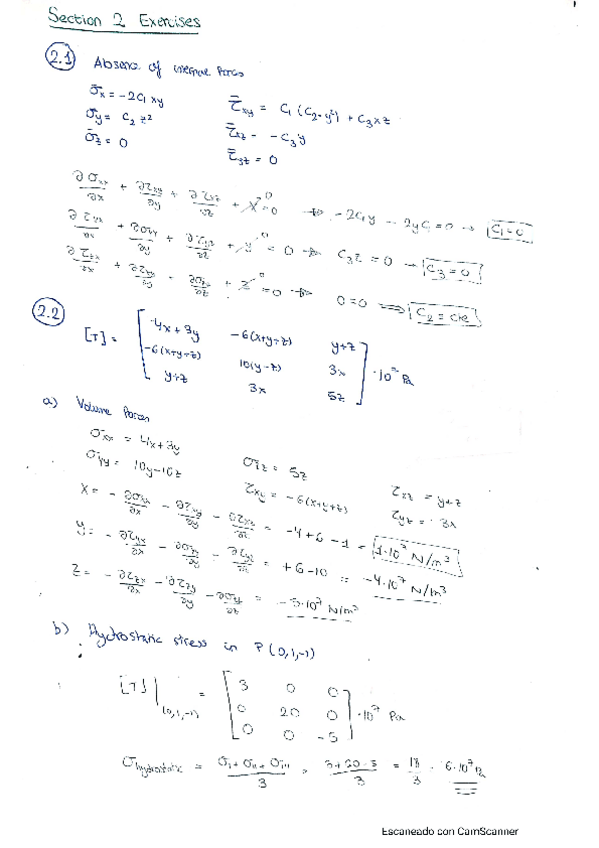 Section 2 Exercises
2.1 Absence of internal forces
σx = -2C1xy    τxy = C1(C2-y²) + C3xz
σy = C2z²    τxz = -C3y
σz = 0    τyz = 0
∂σxx/∂x + ∂τxy/∂y + ∂τxz/∂z + X = 0 → -2C1y - 2yC1 = 0 → C1=0
∂τyx/∂x + ∂σyy/∂y + ∂τyz/∂z + Y = 0 → C3z = 0 → C3 = 0
∂τzx/∂x + ∂τzy/∂y + ∂σzz/∂z + Z = 0 → 0=0 ⟹ C2 = cte
2.2
[T] = [4x+3y  -6(x+y+z)  y+z
-6(x+y+z)  10(y-z)  3x
y+z  3x  5z] ·10⁷ Pa
a) Volume forces
σxx = 4x+3y    σzz = 5z    τxz = y+z
σyy = 10y-10z    τxy = -6(x+y+z)    τyz = 3x
X = -∂σxx/∂x - ∂τxy/∂y - ∂τxz/∂z = -4+6-1 = 1·10⁷ N/m³
Y = -∂τyx/∂x - ∂σyy/∂y - ∂τyz/∂z = +6-10 = -4·10⁷ N/m³
Z = -∂τzx/∂x - ∂τzy/∂y - ∂σzz/∂z = -5·10⁷ N/m³
b) Hydrostatic stress in P(0,1,-1)
[T]|(0,1,-1) = [3  0  0
0  20  0
0  0  -5] ·10⁷ Pa
σhydrostatic = (σI + σII + σIII)/3 = (3+20-5)/3 = 18/3 = 6·10⁷ Pa
Escaneado con CamScanner